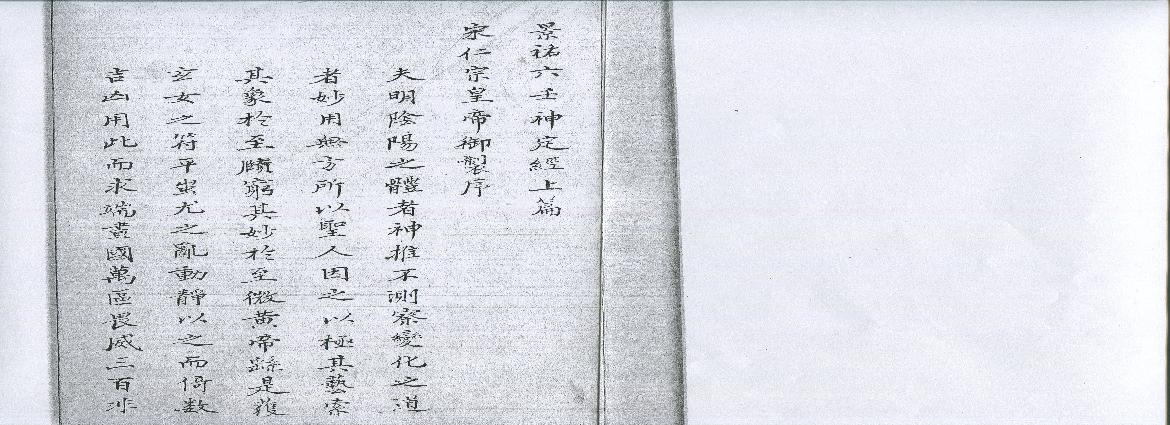 景祐六壬神定經上篇
宋仁宗皇帝御製序
夫明陰陽之體者神推不測察變化之道
者妙用無方所以聖人因之以極其藝索
其象於至賾窮其妙於至微黃帝繇是獲
玄女之符平蚩尤之亂動靜以之而倚數
吉凶用此而求端晝國萬區畏威三百非